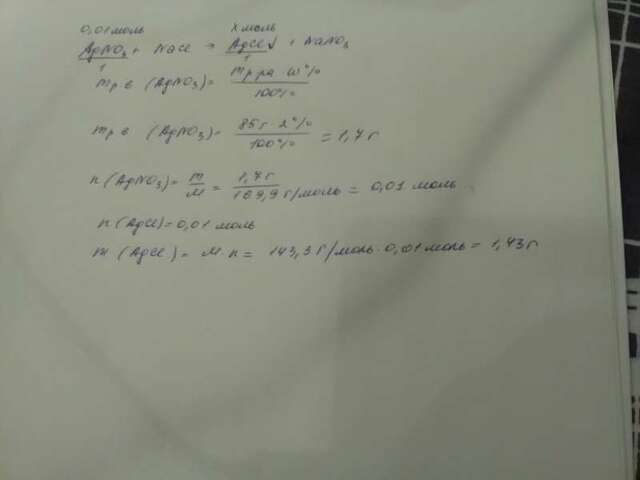 0,01 моль х моль
AgNO3 + NaCl → AgCl↓ + NaNO3
1 1
mр.в (AgNO3) = mр.ра · ω% / 100%
mр.в (AgNO3) = 85 г · 2% / 100% = 1,7 г
n (AgNO3) = m / M = 1,7 г / 169,9 г/моль = 0,01 моль
n (AgCl) = 0,01 моль
m (AgCl) = M · n = 143,3 г/моль · 0,01 моль = 1,43 г